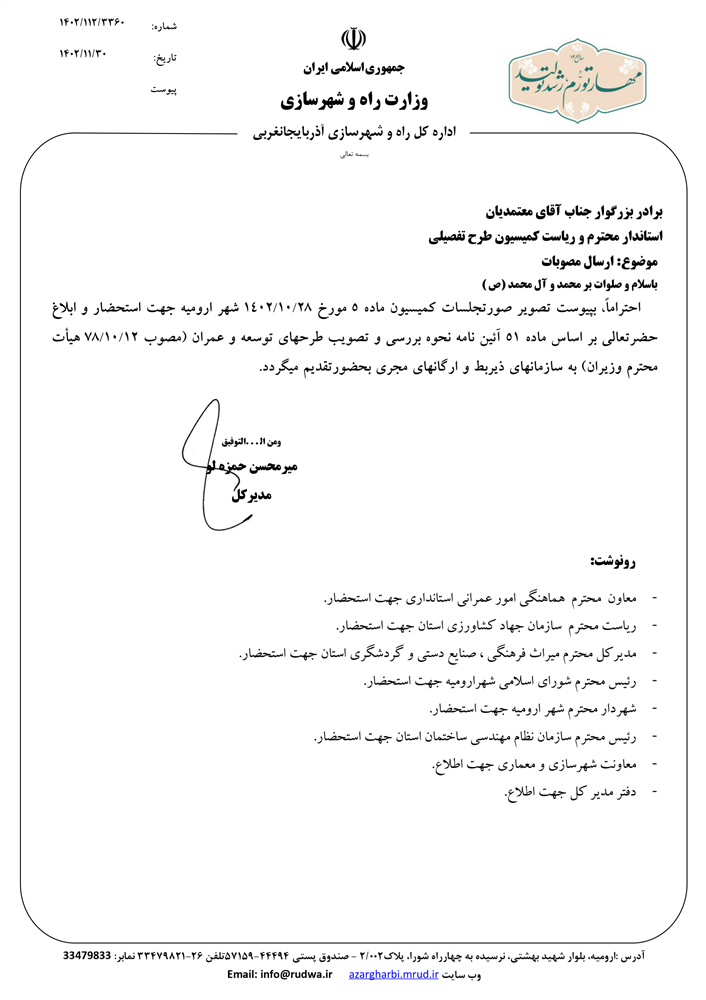 شماره: ۱۴۰۲/۱۱۲/۳۳۶۰
تاریخ: ۱۴۰۲/۱۱/۳۰
پیوست
جمهوری‌اسلامی ایران
وزارت راه و شهرسازی
اداره کل راه و شهرسازی آذربایجانغربی
بسمه تعالی
مهار تورم رشد تولید
برادر بزرگوار جناب آقای معتمدیان
استاندار محترم و ریاست کمیسیون طرح تفصیلی
موضوع: ارسال مصوبات
باسلام و صلوات بر محمد و آل محمد (ص)
احتراماً، بپیوست تصویر صورتجلسات کمیسیون ماده ۵ مورخ ۱۴۰۲/۱۰/۲۸ شهر ارومیه جهت استحضار و ابلاغ
حضرتعالی بر اساس ماده ۵۱ آئین نامه نحوه بررسی و تصویب طرحهای توسعه و عمران (مصوب ۷۸/۱۰/۱۲ هیأت
محترم وزیران) به سازمانهای ذیربط و ارگانهای مجری بحضورتقدیم میگردد.
ومن ال...التوفیق
میرمحسن حمزه لو
مدیرکل
رونوشت:
- معاون محترم هماهنگی امور عمرانی استانداری جهت استحضار.
- ریاست محترم سازمان جهاد کشاورزی استان جهت استحضار.
- مدیرکل محترم میراث فرهنگی ، صنایع دستی و گردشگری استان جهت استحضار.
- رئیس محترم شورای اسلامی شهرارومیه جهت استحضار.
- شهردار محترم شهر ارومیه جهت استحضار.
- رئیس محترم سازمان نظام مهندسی ساختمان استان جهت استحضار.
- معاونت شهرسازی و معماری جهت اطلاع.
- دفتر مدیر کل جهت اطلاع.
آدرس :ارومیه، بلوار شهید بهشتی، نرسیده به چهارراه شورا، پلاک۲/۰۰۲ - صندوق پستی ۴۴۴۹۴-۵۷۱۵۹تلفن ۲۶-۳۳۴۷۹۸۲۱ نمابر: 33479833
وب سایت azargharbi.mrud.ir Email: info@rudwa.ir